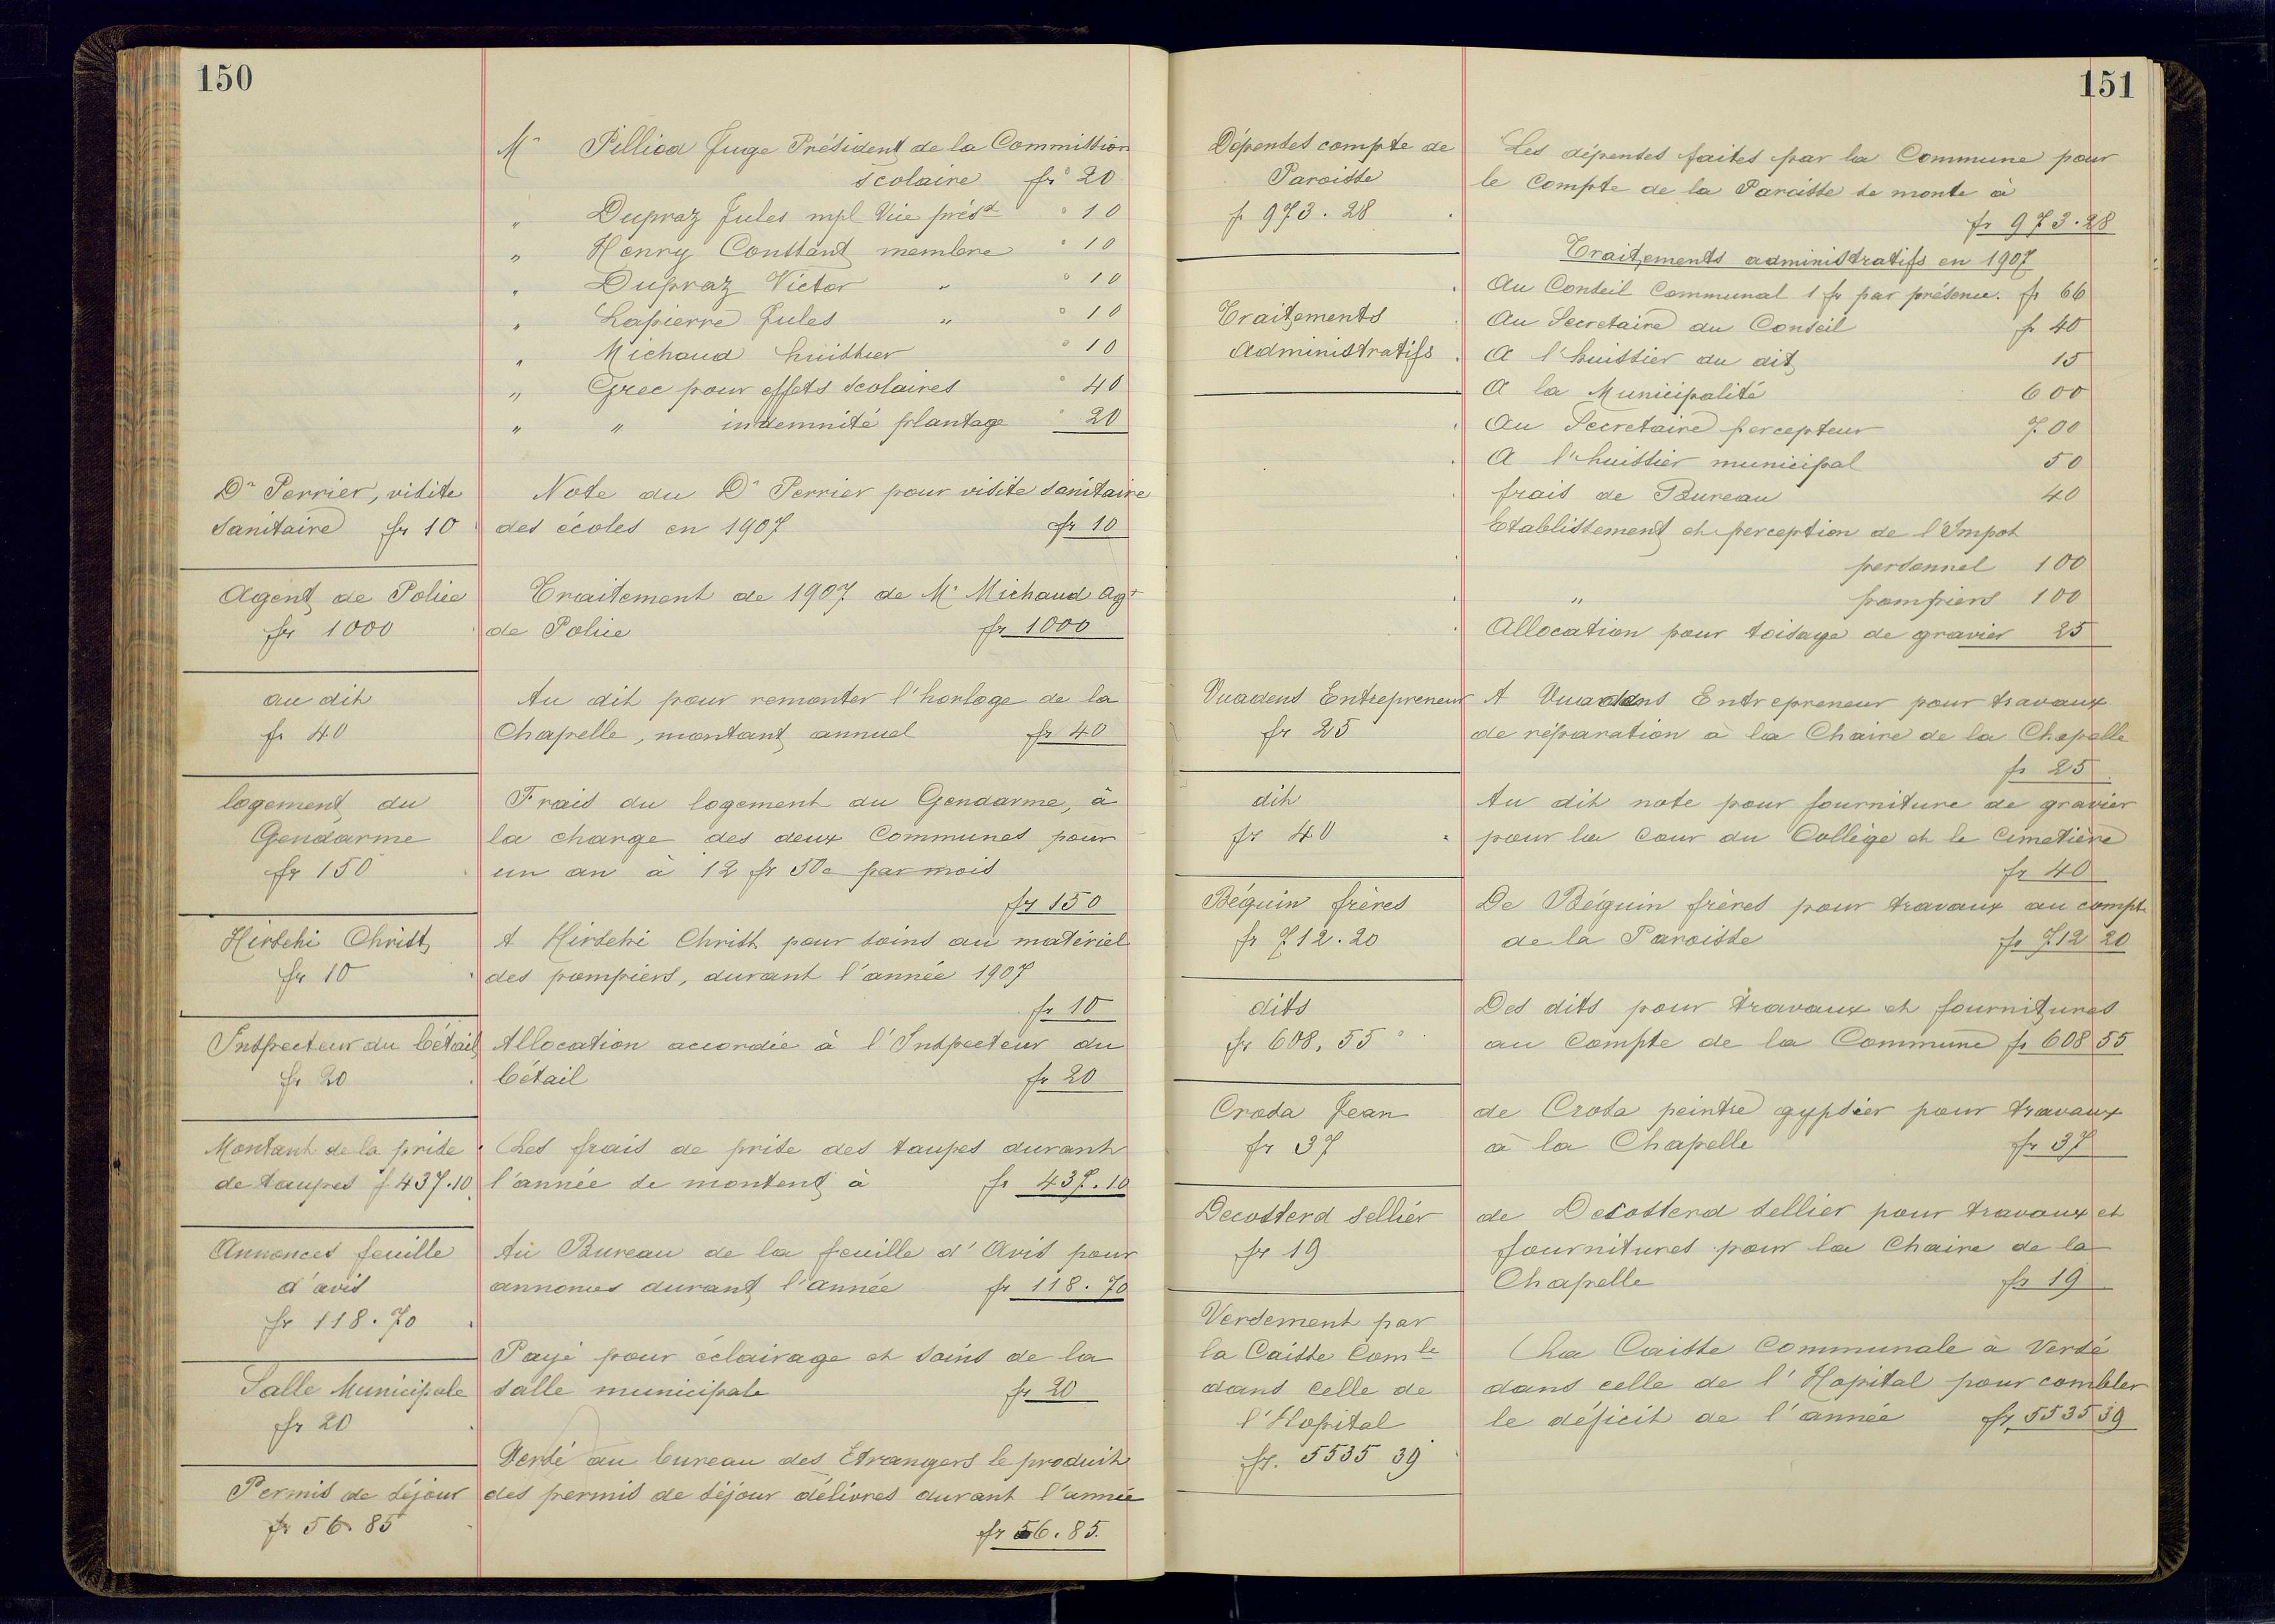 150
Mr Pilliod Juge Président de la Commission
scolaire fr 20
" Dupraz Jules mpl Vice présdt " 10
" Henry Constant membre " 10
" Dupraz Victor " " 10
" Lapierre Jules " " 10
" Michaud huissier " 10
" Grec pour effets scolaires " 40
" " indemnité plantage " 20
Dr Perrier, visite
sanitaire fr 10
Note du Dr Perrier pour visite sanitaire
des écoles en 1907 fr 10
Agent de Police
fr 1000
Traitement de 1907 de Mr Michaud agt
de Police fr 1000
au dit
fr 40
Au dit pour remonter l'horloge de la
Chapelle, montant annuel fr 40
logement du
Gendarme
fr 150
Frais du logement du Gendarme, à
la charge des deux Communes pour
un an à 12 fr 50c par mois
fr 150
Hirschi Christ
fr 10
A Hirschi Christ pour soins au matériel
des pompiers, durant l'année 1907
fr 10
Inspecteur du bétail
fr 20
Allocation accordée à l'Inspecteur du
bétail fr 20
Montant de la prise
de taupes f 437.10
Les frais de prise des taupes durant
l'année se montent à fr 437.10
Annonces feuille
d'avis
fr 118.70
Au Bureau de la feuille d'Avis pour
annonces durant l'année fr 118.70
Salle Municipale
fr 20
Payé pour éclairage et soins de la
salle municipale fr 20
Permis de séjour
fr 56.85
Versé au bureau des Etrangers le produit
des permis de séjour délivrés durant l'année
fr 56.85.
151
Dépenses compte de
Paroisse
fr 973.28
Les dépenses faites par la Commune pour
le Compte de la Paroisse se monte à
fr 973.28
Traitements
Administratifs
Traitements administratifs en 1907
Au Conseil Communal 1 fr par présence. fr 66
Au Secretaire du Conseil fr 40
A l'huissier du dit 15
A la Municipalité 600
Au Secretaire percepteur 700
A l'huissier municipal 50
frais de Bureau 40
Etablissement et perception de l'Impot
personnel 100
" pompiers 100
Allocation pour toisage de gravier 25
Vuadens Entrepreneur
fr 25
A Vuadens Entrepreneur pour travaux
de réparation à la Chaire de la Chapelle
fr 25
dit
fr 40
Au dit note pour fourniture de gravier
pour la cour du Collège et le Cimetière
fr 40
Béguin frères
fr 712.20
De Béguin frères pour travaux au compte
de la Paroisse fr 712 20
dits
fr 608,55
Des dits pour travaux et fournitures
au Compte de la Commune fr 608 55
Crosa Jean
fr 37
de Crosa peintre gypsier pour travaux
à la Chapelle fr 37
Decosterd sellier
fr 19
de Decosterd sellier pour travaux et
fournitures pour la Chaire de la
Chapelle fr 19
Versement par
la Caisse Comle
dans celle de
l'Hopital
fr. 5535 39
La Caisse Communale à versé
dans celle de l'Hopital pour combler
le déficit de l'année fr 5535 39